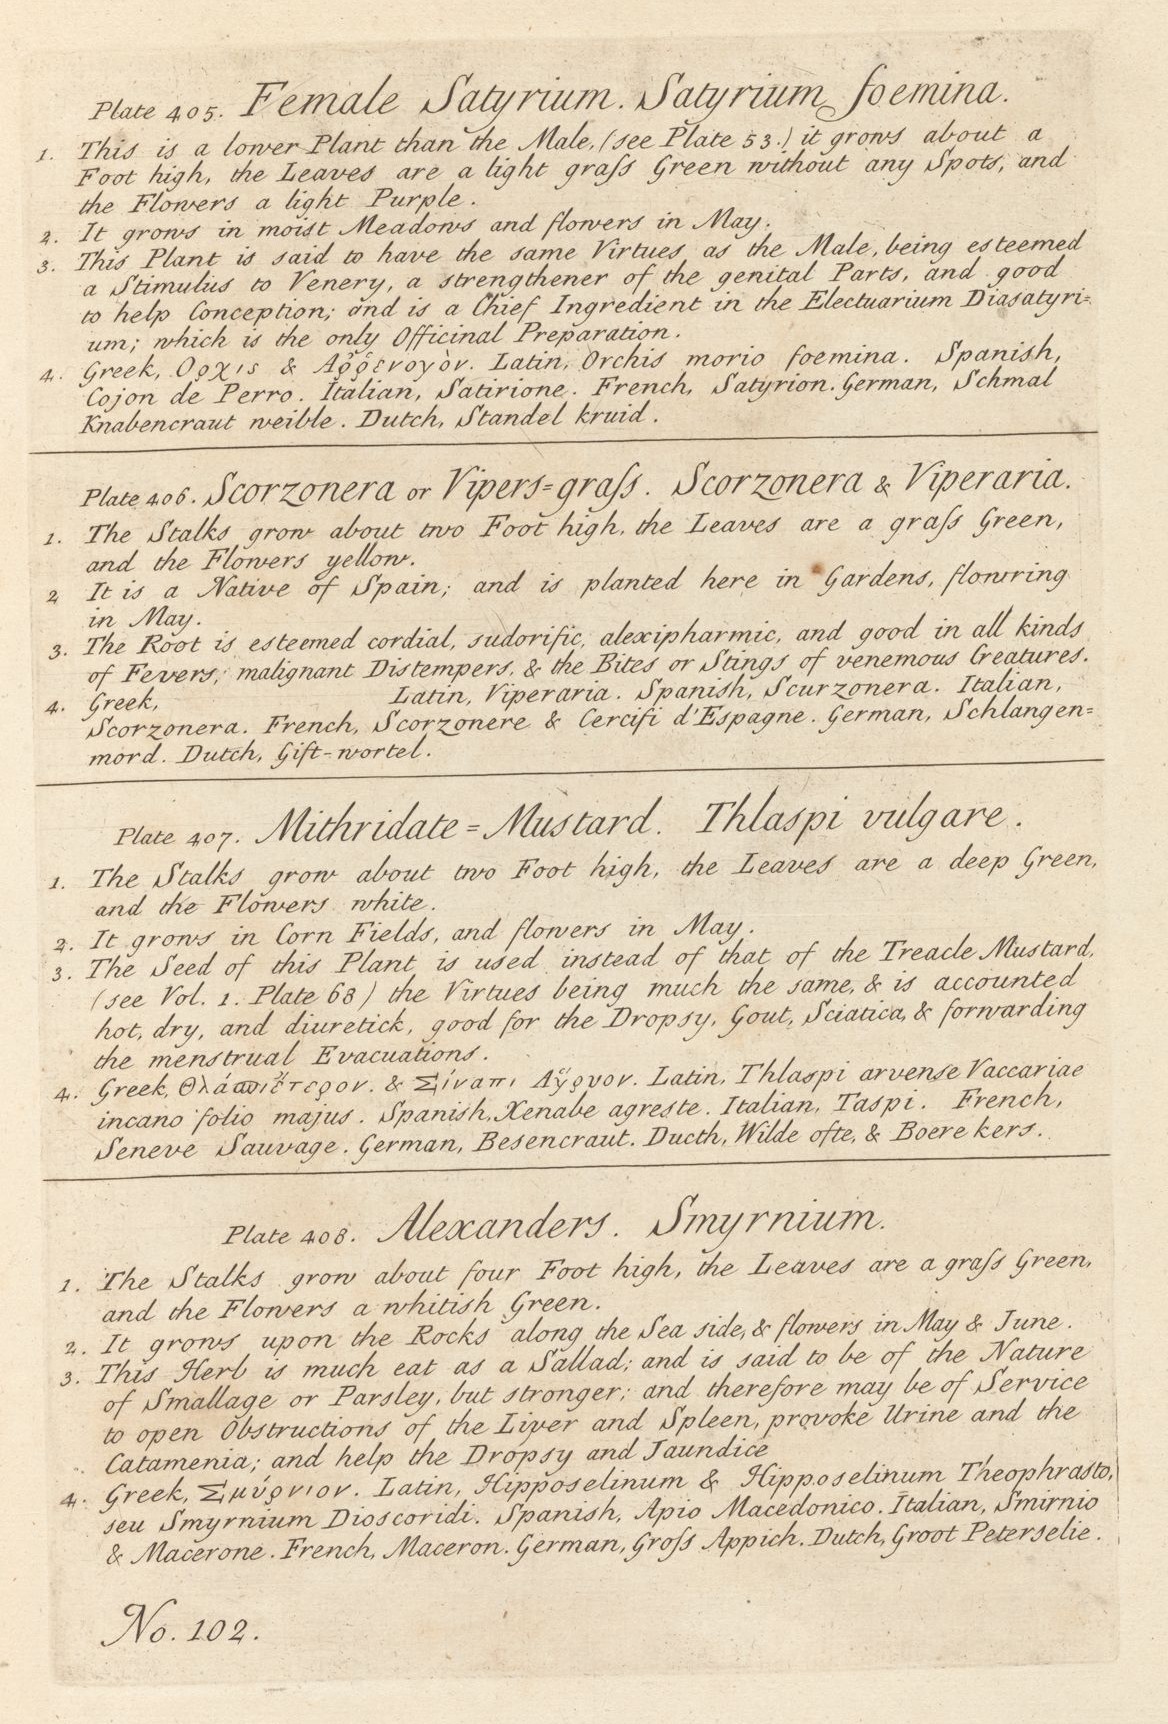 Plate 405. Female Satyrium. Satyrium foemina.
1. This is a lower Plant than the Male, (see Plate 53.) it grows about a
Foot high, the Leaves are a light graſs Green without any Spots, and
the Flowers a light Purple.
2. It grows in moist Meadows and flowers in May.
3. This Plant is said to have the same Virtues as the Male, being esteemed
a Stimulus to Venery, a strengthener of the genital Parts, and good
to help Conception; and is a Chief Ingredient in the Electuarium Diasatyri=
um; which is the only Officinal Preparation.
4. Greek, Ορχις & Αῤῥενογὸν. Latin, Orchis morio foemina. Spanish,
Cojon de Perro. Italian, Satirione. French, Satyrion. German, Schmal
Knabencraut weible. Dutch, Standel kruid.
Plate 406. Scorzonera or Vipers=graſs. Scorzonera & Viperaria.
1. The Stalks grow about two Foot high, the Leaves are a graſs Green,
and the Flowers yellow.
2 It is a Native of Spain; and is planted here in Gardens, flowring
in May.
3. The Root is esteemed cordial, sudorific, alexipharmic, and good in all kinds
of Fevers, malignant Distempers, & the Bites or Stings of venemous Creatures.
4. Greek, Latin, Viperaria. Spanish, Scurzonera. Italian,
Scorzonera. French, Scorzonere & Cercifi d'Espagne. German, Schlangen=
mord. Dutch, Gift-wortel.
Plate 407. Mithridate=Mustard. Thlaspi vulgare.
1. The Stalks grow about two Foot high, the Leaves are a deep Green,
and the Flowers white.
2. It grows in Corn Fields, and flowers in May.
3. The Seed of this Plant is used instead of that of the Treacle Mustard,
(see Vol. 1. Plate 68) the Virtues being much the same, & is accounted
hot, dry, and diuretick, good for the Dropsy, Gout, Sciatica, & forwarding
the menstrual Evacuations.
4. Greek, & Σίναπι Ἄγριον. Latin, Thlaspi arvense Vaccariae
incano folio majus. Spanish, Xenabe agreste. Italian, Taspi. French,
Seneve Sauvage. German, Besencraut. Ducth, Wilde ofte, & Boere kers.
Plate 408. Alexanders. Smyrnium.
1. The Stalks grow about four Foot high, the Leaves are a graſs Green,
and the Flowers a whitish Green.
2. It grows upon the Rocks along the Sea side, & flowers in May & June.
3. This Herb is much eat as a Sallad; and is said to be of the Nature
of Smallage or Parsley, but stronger; and therefore may be of Service
to open Obstructions of the Liver and Spleen, provoke Urine and the
Catamenia; and help the Dropsy and Jaundice
4. Greek, Σμύρνιον. Latin, Hipposelinum & Hipposelinum Theophrasto,
seu Smyrnium Dioscoridi. Spanish, Apio Macedonico. Italian, Smirnio
& Macerone. French, Maceron. German, Groſs Appich. Dutch, Groot Peterselie.
No. 102.